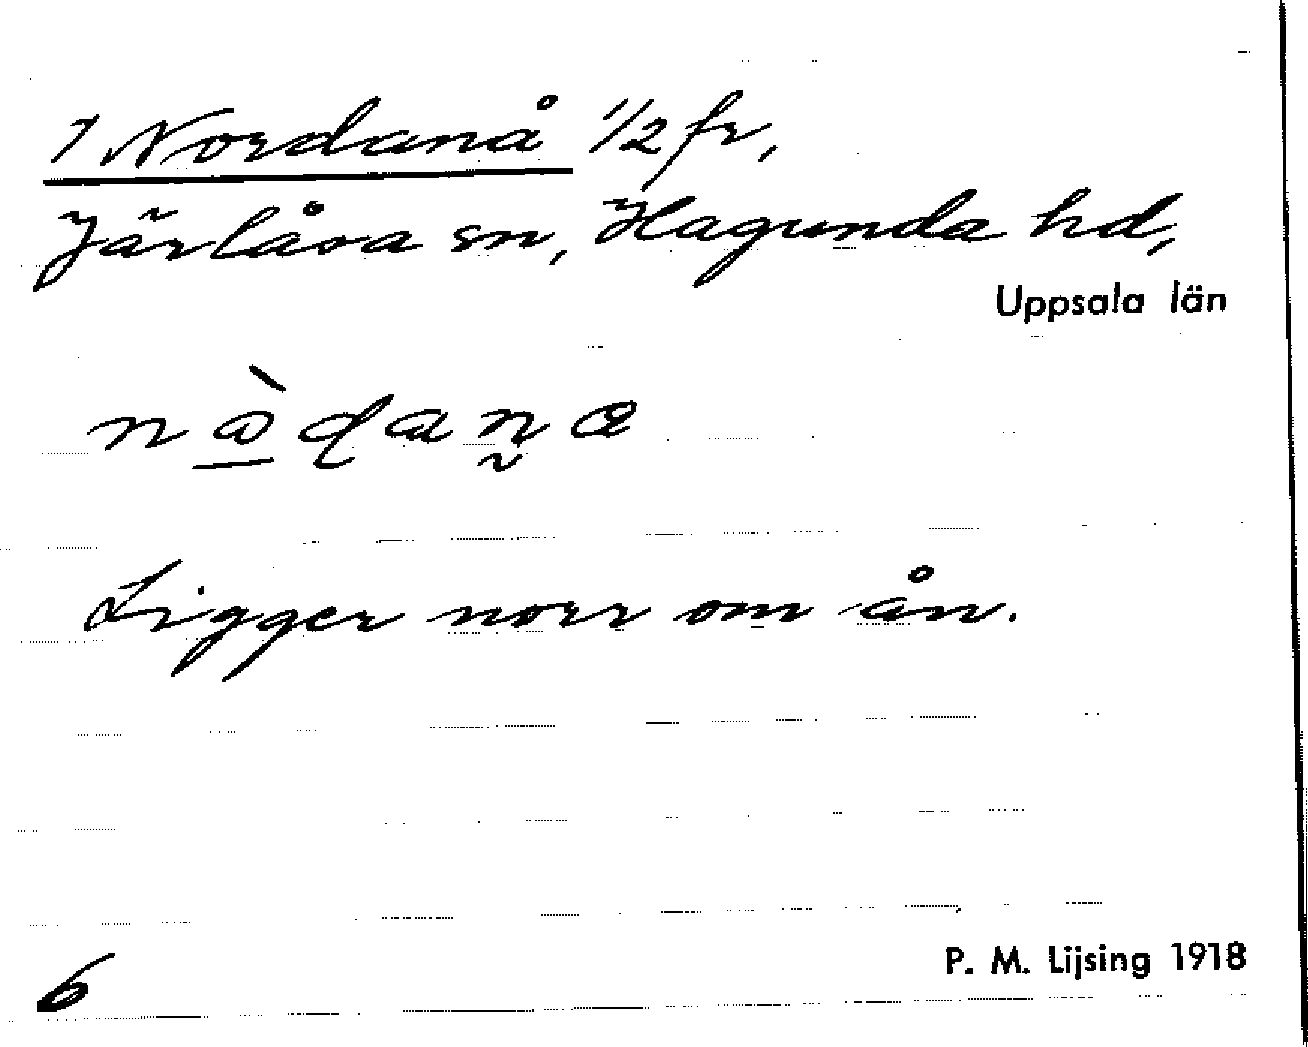 1 Nordanå 1/2 fr,
Järlåsa sn, Hagunda hd,
Uppsala län
Ligger norr om ån.
P. M. Lijsing 1918
6